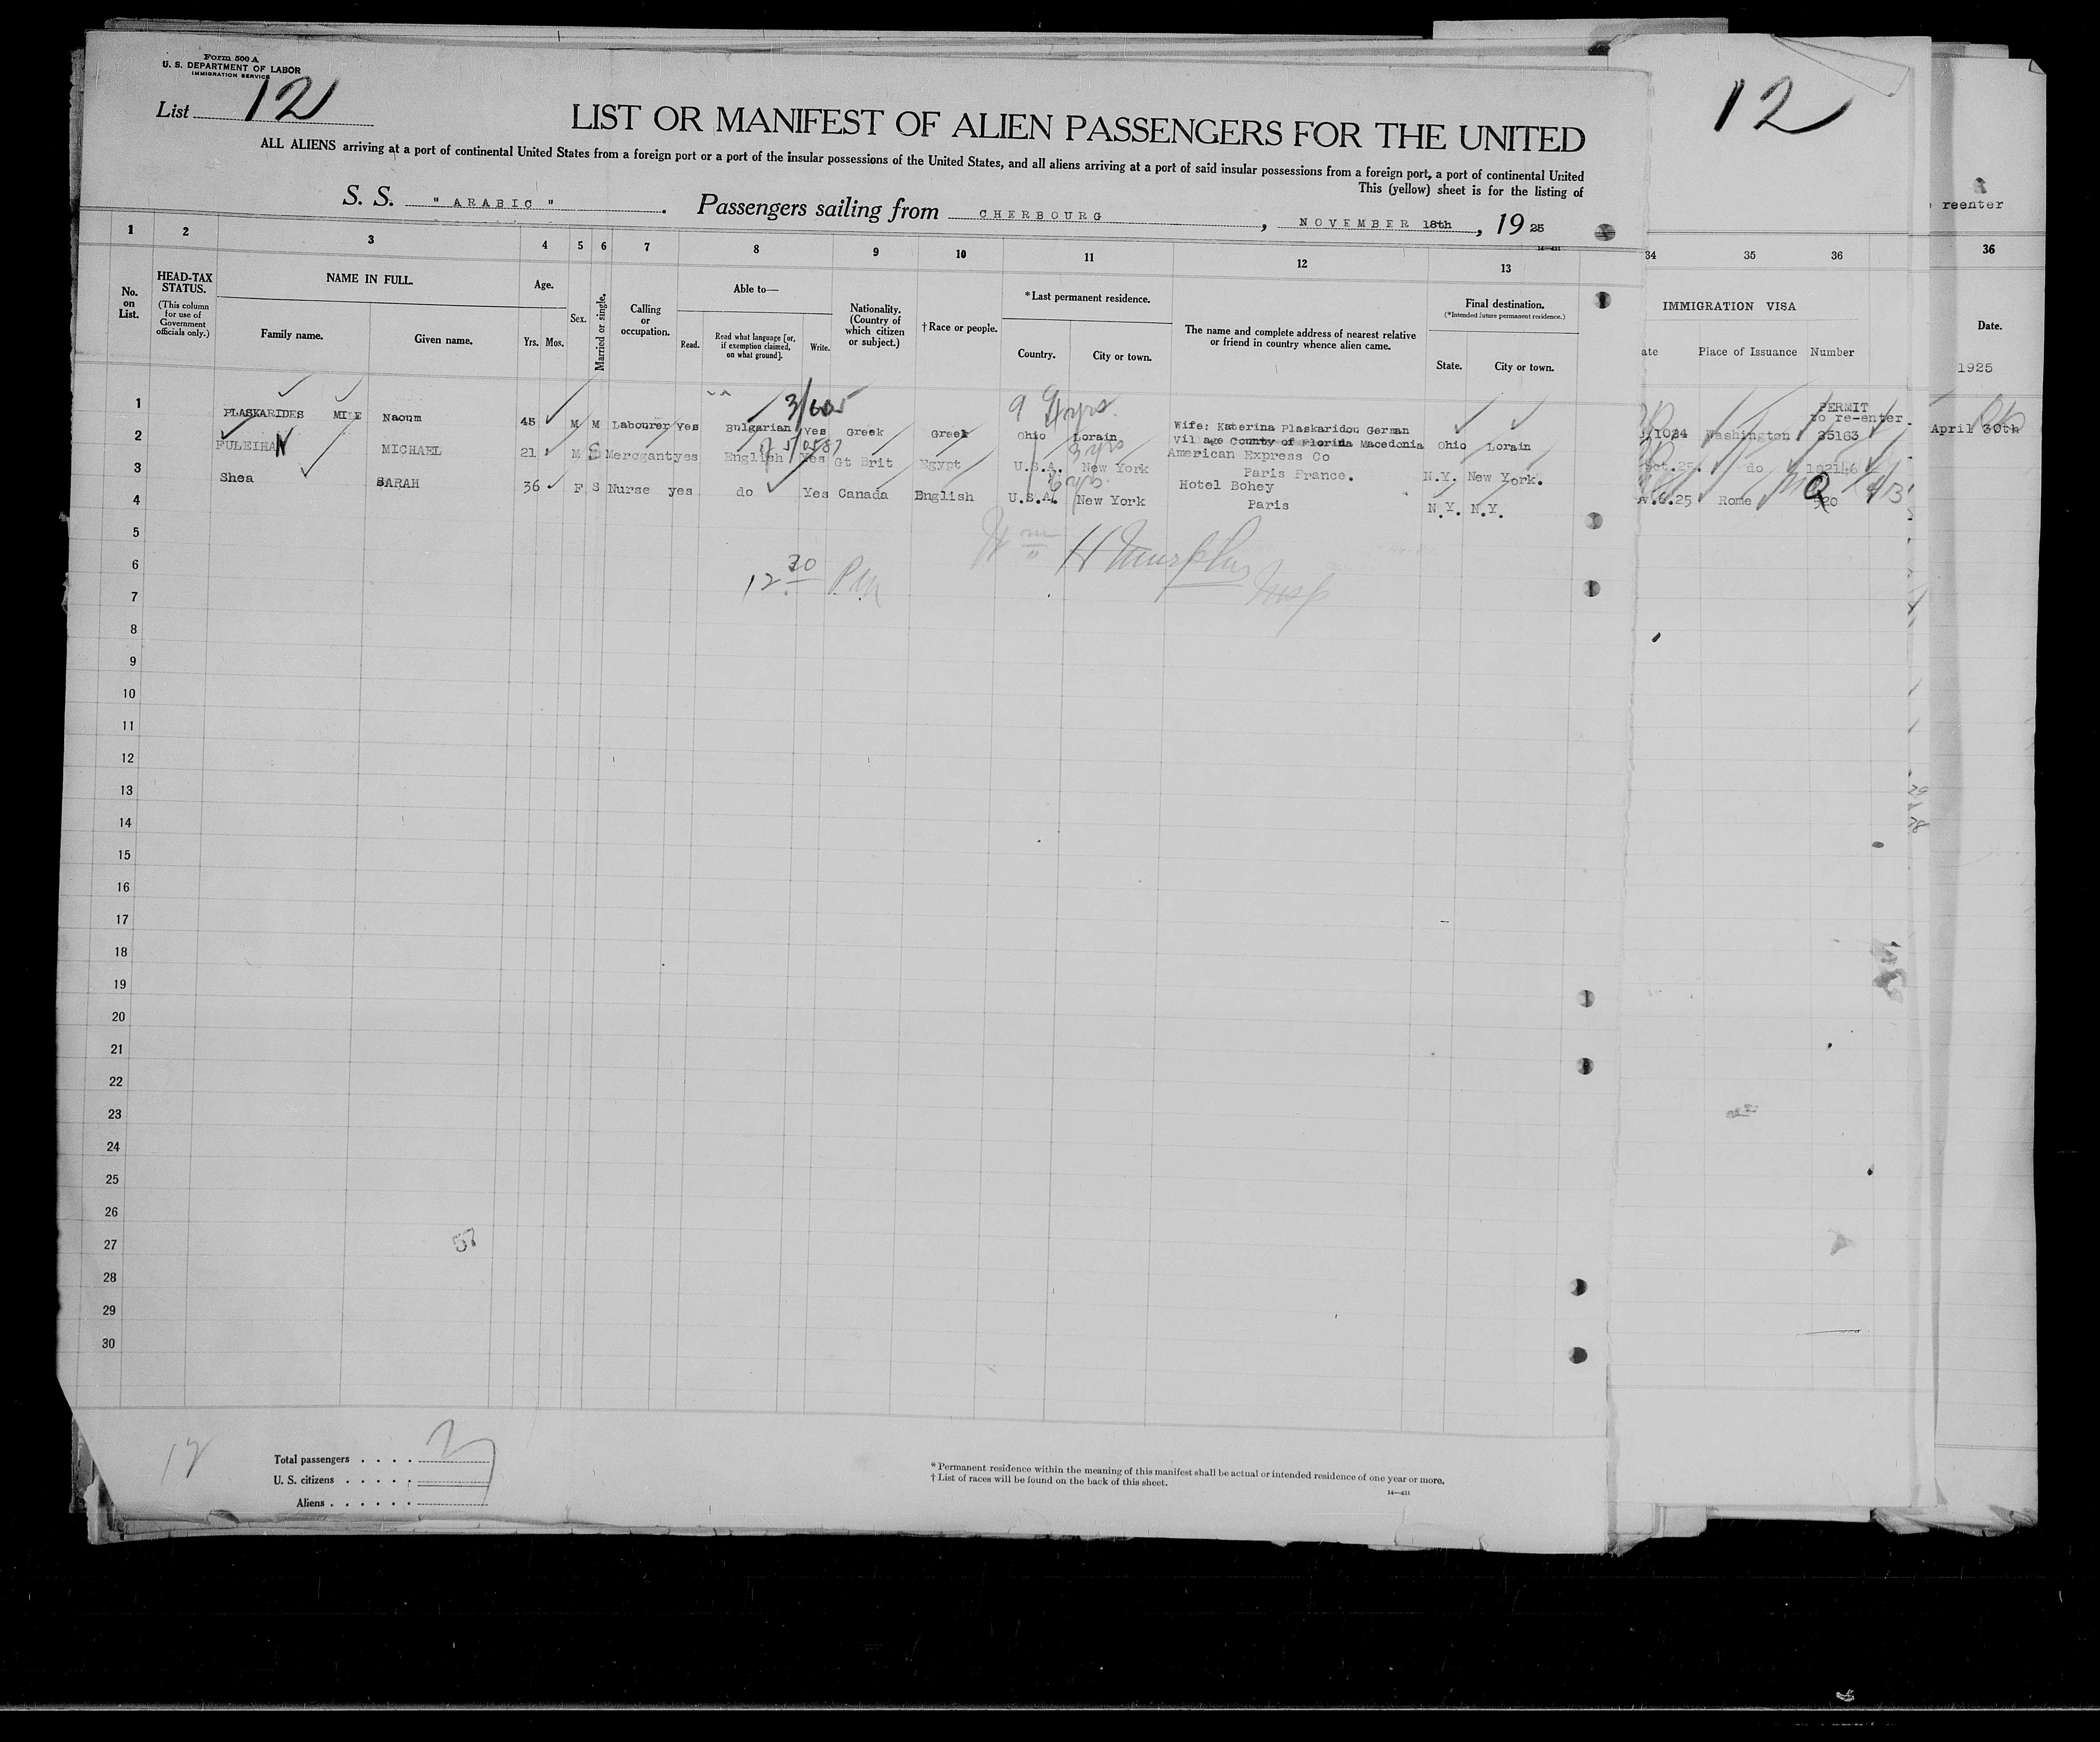 Form 500 A
U. S. DEPARTMENT OF LABOR
IMMIGRATION SERVICE
List 12
12
LIST OR MANIFEST OF ALIEN PASSENGERS FOR THE UNITED
ALL ALIENS arriving at a port of continental United States from a foreign port or a port of the insular possessions of the United States, and all aliens arriving at a port of said insular possessions from a foreign port, a port of continental United
This (yellow) sheet is for the listing of
S. S. " ARABIC " . Passengers sailing from CHERBOURG , NOVEMBER 18th , 19 25
reenter
1 2 3 4 5 6 7 8 9 10 11 12 13 34 35 36 36
No. on List.
HEAD-TAX STATUS.
(This column for use of Government officials only.)
NAME IN FULL.
Family name. Given name.
Age.
Yrs. Mos.
Sex.
Married or single.
Calling or occupation.
Able to—
Read. Read what language [or, if exemption claimed, on what ground]. Write.
Nationality. (Country of which citizen or subject.)
†Race or people.
*Last permanent residence.
Country. City or town.
The name and complete address of nearest relative or friend in country whence alien came.
Final destination.
(*Intended future permanent residence.)
State. City or town.
IMMIGRATION VISA
ate Place of Issuance Number
Date.
1925
9 yrs.
1 PLASKARIDES MILE Naoum 45 M M Labourer yes Bulgarian yes Greek Greek Ohio Lorain Wife: Katerina Plaskaridou German
village County of Florina Macedonia Ohio Lorain 1024 Washington PERMIT to re-enter 35163 April 30th
3 yrs
2 FULEIHAN MICHAEL 21 M S Mercgant yes English Yes Gt Brit Egypt U.S.A. New York American Express Co
Paris France. N.Y. New York. Oct.25 do 192146
6 yrs.
3 Shea SARAH 36 F S Nurse yes do Yes Canada English U.S.A. New York Hotel Bohey
Paris N.Y. N.Y. v.6.25 Rome 520
4
5
H Murphy
6
12 30 PM Insp
7
8
9
10
11
12
13
14
15
16
17
18
19
20
21
22
23
24
25
26
27
57
28
29
30
12
Total passengers . . . . 3
U. S. citizens . . . . .
Aliens . . . . . .
* Permanent residence within the meaning of this manifest shall be actual or intended residence of one year or more.
† List of races will be found on the back of this sheet.
14—431